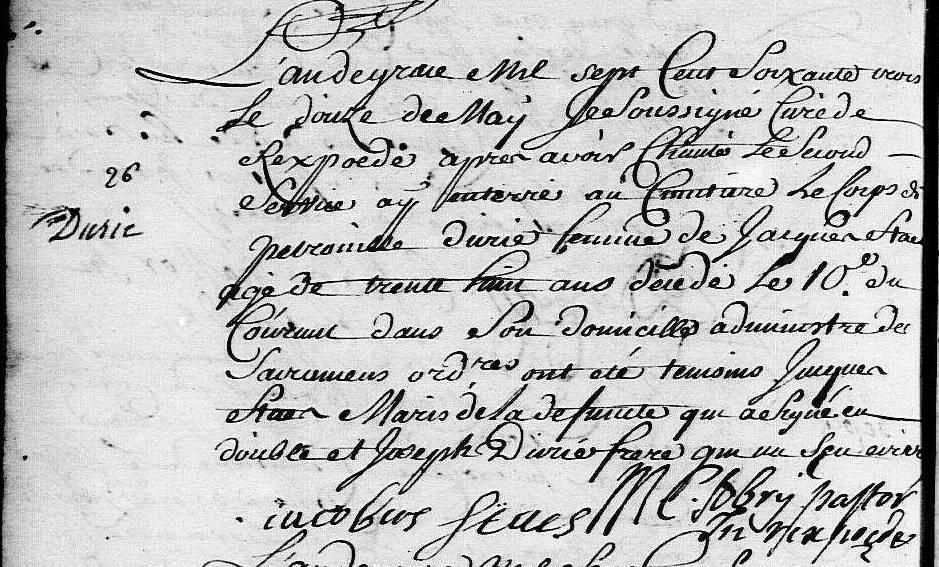 L'an de grace Mil sept Cent Soixante trois
Le douze de May Je Soussigné Curé de
Rexpoede apres avoir Chanté Le Second
Service ay enterré au Cimetiere Le Corps de
26
Durie
petronille durie femme de Jacques Staes
agé de trente huit ans décédé Le 10e. du
Courant dans Son domicille administre des
Sacremens ordres ont été temoins Jacques
Staes Maris de la defunte qui a Signé en
double et Joseph Durie frere qui na Sçu ecrire
jacobus staes pastor
In rexpoede
L'an de grace Mil